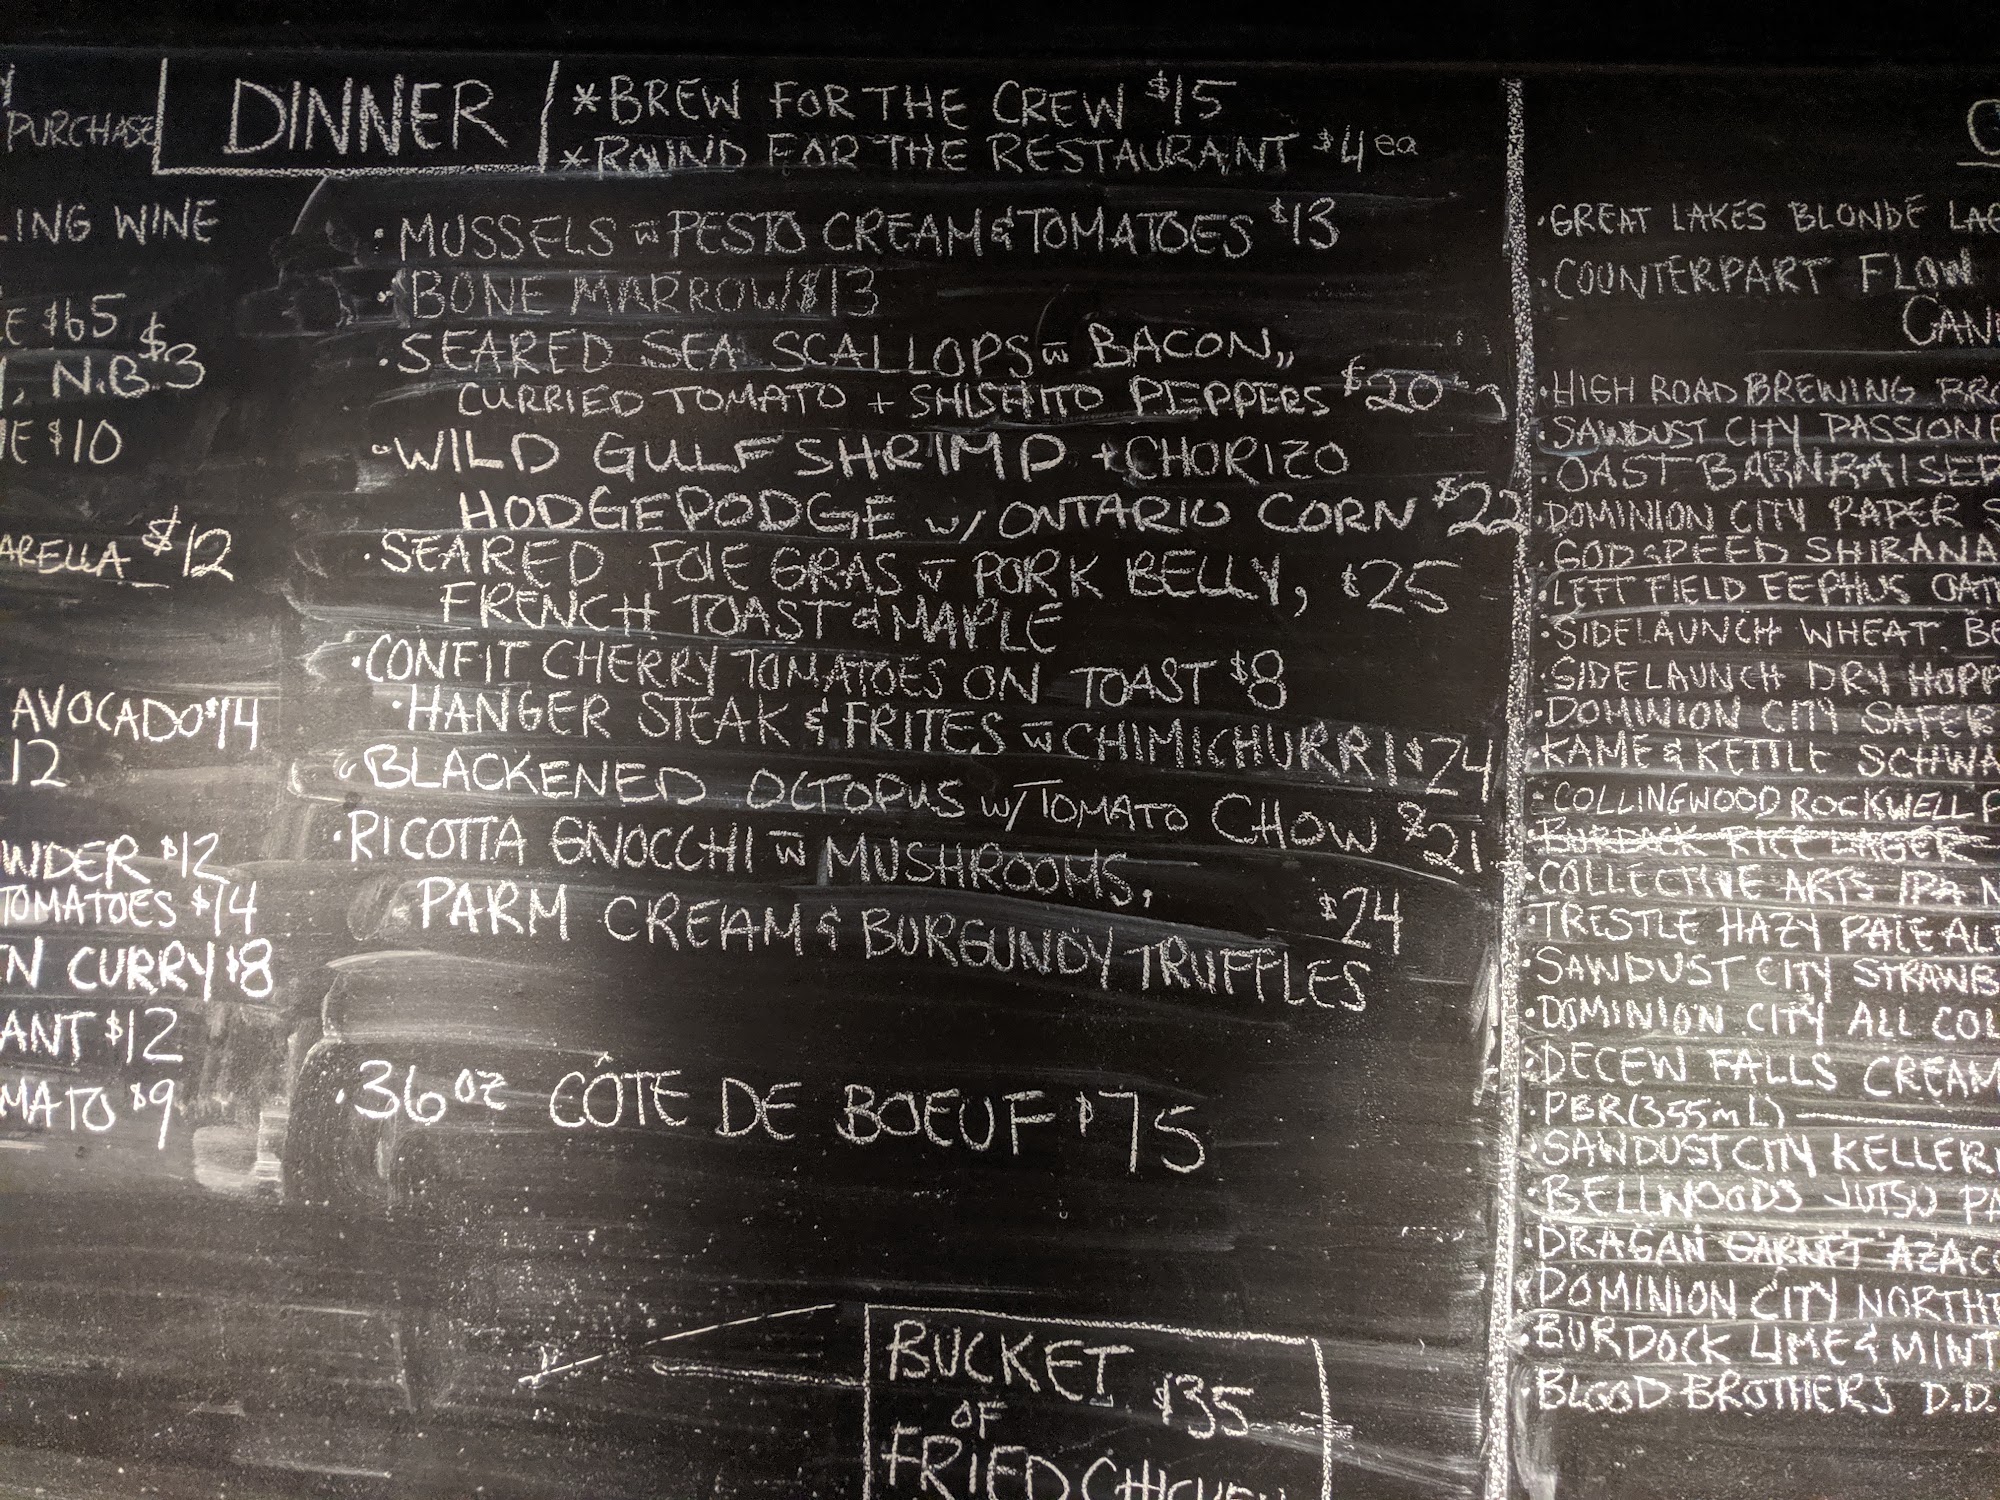 PURCHASE
LING WINE
E $65
$3
, N.B.
E $10
ARELLA $12
AVOCADO $14
12
WDER $12
TOMATOES $14
EN CURRY $8
ANT $12
MATO $9
DINNER
*BREW FOR THE CREW $15
*ROUND FOR THE RESTAURANT $4 ea
· MUSSELS w PESTO CREAM & TOMATOES $13
· BONE MARROW $13
· SEARED SEA SCALLOPS w BACON,,
CURRIED TOMATO + SHISHITO PEPPERS $20
· WILD GULF SHRIMP + CHORIZO
HODGEPODGE w/ ONTARIO CORN $22
· SEARED FOIE GRAS w PORK BELLY, $25
FRENCH TOAST & MAPLE
· CONFIT CHERRY TOMATOES ON TOAST $8
· HANGER STEAK & FRITES w CHIMICHURRI $24
· BLACKENED OCTOPUS w/ TOMATO CHOW $21
· RICOTTA GNOCCHI w MUSHROOMS,
PARM CREAM & BURGUNDY TRUFFLES $24
· 36oz CÔTE DE BOEUF $75
BUCKET
OF $35
FRIED CHICKEN
· GREAT LAKES BLONDE LAG
· COUNTERPART FLOW
CAN
· HIGH ROAD BREWING BRO
· SAWDUST CITY PASSIONE
· OAST BARNRAISER
· DOMINION CITY PAPER S
· GODSPEED SHIRANA
· LEFT FIELD EEPHUS OAT
· SIDELAUNCH WHEAT BE
· SIDELAUNCH DRY HOPP
· DOMINION CITY SAFER
· KAME & KETTLE SCHWA
· COLLINGWOOD ROCKWELL P
· BURDOCK RICE LAGER
· COLLECTIVE ARTS IPA N
· TRESTLE HAZY PALE ALE
· SAWDUST CITY STRAWB
· DOMINION CITY ALL COL
· DECEW FALLS CREAM
· PBR (355mL)
· SAWDUST CITY KELLER
· BELLWOODS JUTSU PA
· DRAGAN GARNET AZACC
· DOMINION CITY NORTH
· BURDOCK LIME & MINT
· BLOOD BROTHERS D.D.